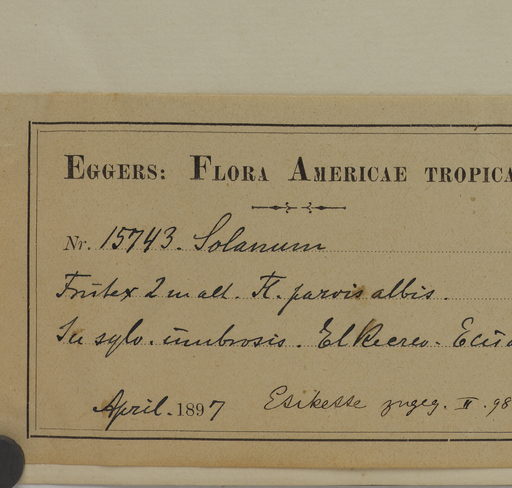 EGGERS: FLORA AMERICAE TROPICA
Nr. 15743. Solanum
Frutex 2 m alt. Fl. parvis albis.
In sylv. umbrosis. El Recreo. Ecua
April. 1897 zugeg. II. 98